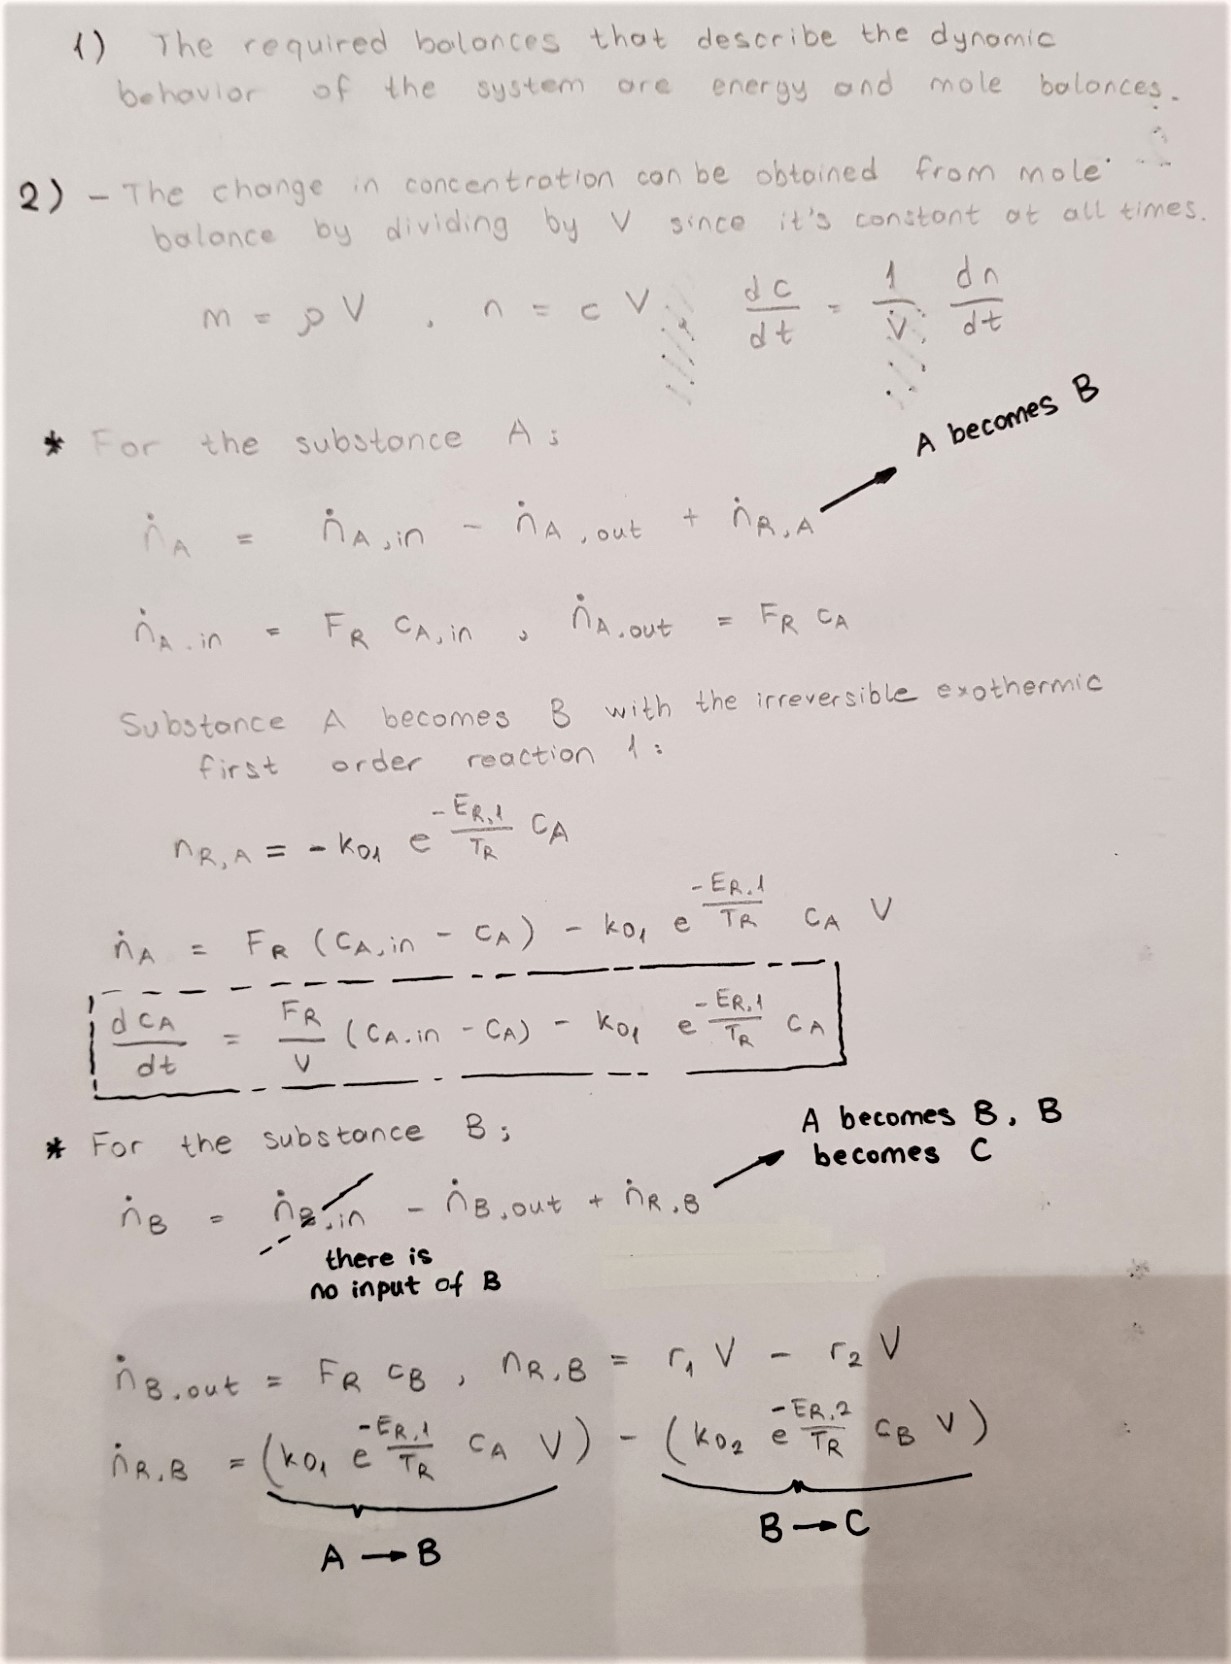 1) The required balances that describe the dynamic
behavior of the system are energy and mole balances.
2) - The change in concentration can be obtained from mole
balance by dividing by V since it's constant at all times.
m = ρ V , n = c V , dc/dt = 1/V dn/dt
A becomes B
* For the substance A;
ṅA = ṅA,in - ṅA,out + ṅR,A
ṅA,in = FR CA,in , ṅA,out = FR CA
Substance A becomes B with the irreversible exothermic
first order reaction 1:
nR,A = - k01 e^(-ER,1/TR) CA
ṅA = FR (CA,in - CA) - k01 e^(-ER,1/TR) CA V
dCA/dt = FR/V (CA,in - CA) - k01 e^(-ER,1/TR) CA
* For the substance B;
A becomes B, B
becomes C
ṅB = ṅB,in - ṅB,out + ṅR,B
there is
no input of B
ṅB,out = FR CB , nR,B = r1 V - r2 V
ṅR,B = (k01 e^(-ER,1/TR) CA V) - (k02 e^(-ER,2/TR) CB V)
A → B
B → C